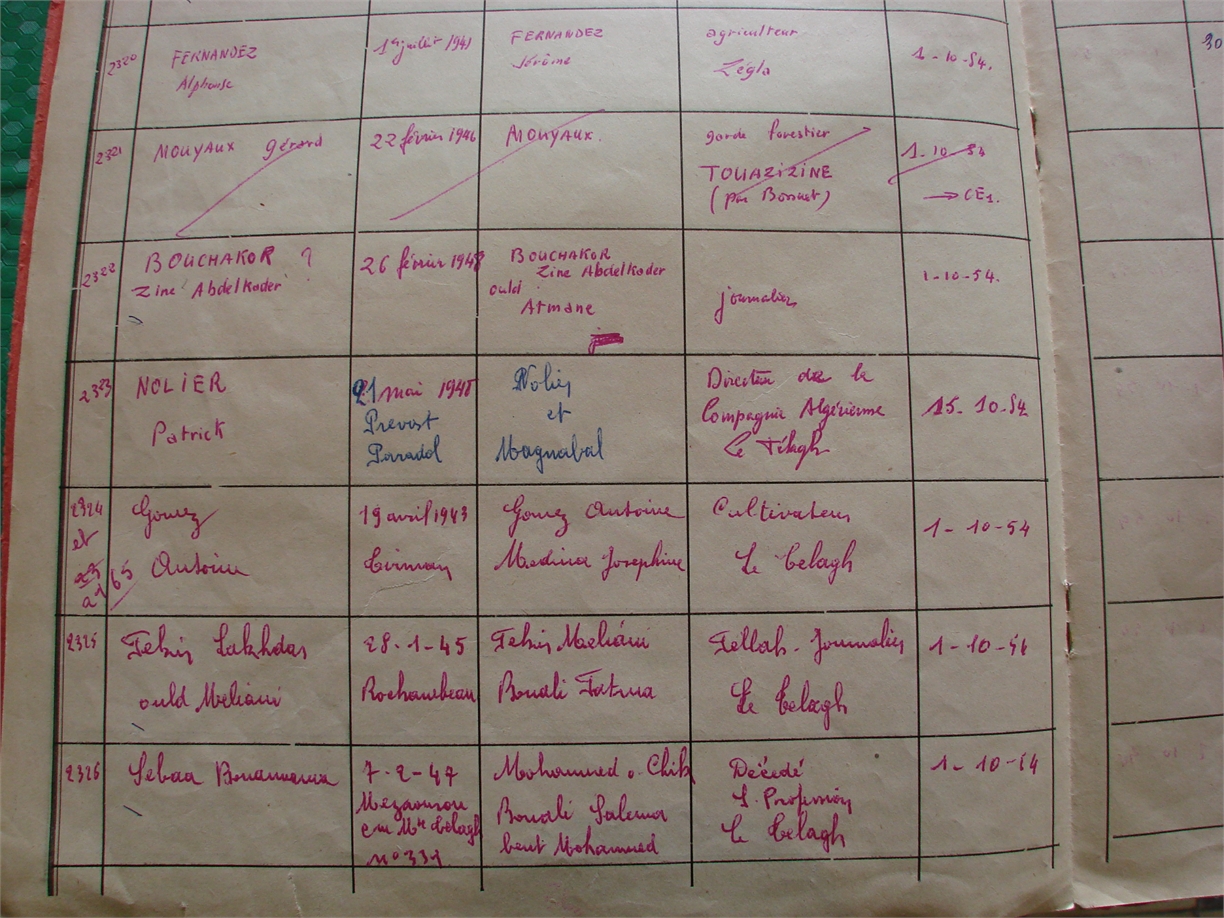 2320
FERNANDEZ
Alphonse
1er juillet 1941
FERNANDEZ
Jérôme
agriculteur
Zégla
1-10-54.
30
2321
MOUYAUX gérard
22 février 1946
MOUYAUX.
garde forestier
TOUAZIZINE
(par Bossuet)
1-10-54
→ CE1.
2322
BOUCHAKOR ?
Zine Abdelkader
26 février 1948
BOUCHAKOR
Zine Abdelkader
ould
Atmane
journalier
1-10-54.
2323
NOLIER
Patrick
21 mai 1948
Prévost
Paradol
Nolier
et
Magnabal
Directeur de la
Compagnie Algérienne
Le Télagh
15-10-54
2324
et
Gomez
Antoine
19 avril 1943
Gomez Antoine
Medina Josephine
Cultivateur
Le Telagh
1-10-54
2325
Tekin Lakhdar
ould Meliani
28-1-45
Rochambeau
Tekin Meliani
Bouali Fatma
Fellah-Journalier
Le Telagh
1-10-54
2326
Sebaa Bouamama
7-2-47
Mezaourou
cne Mte Telagh
n° 331
Mohammed o. Chikh
Bouali Salema
bent Mohammed
Décédé
S. Profession
Le Telagh
1-10-54